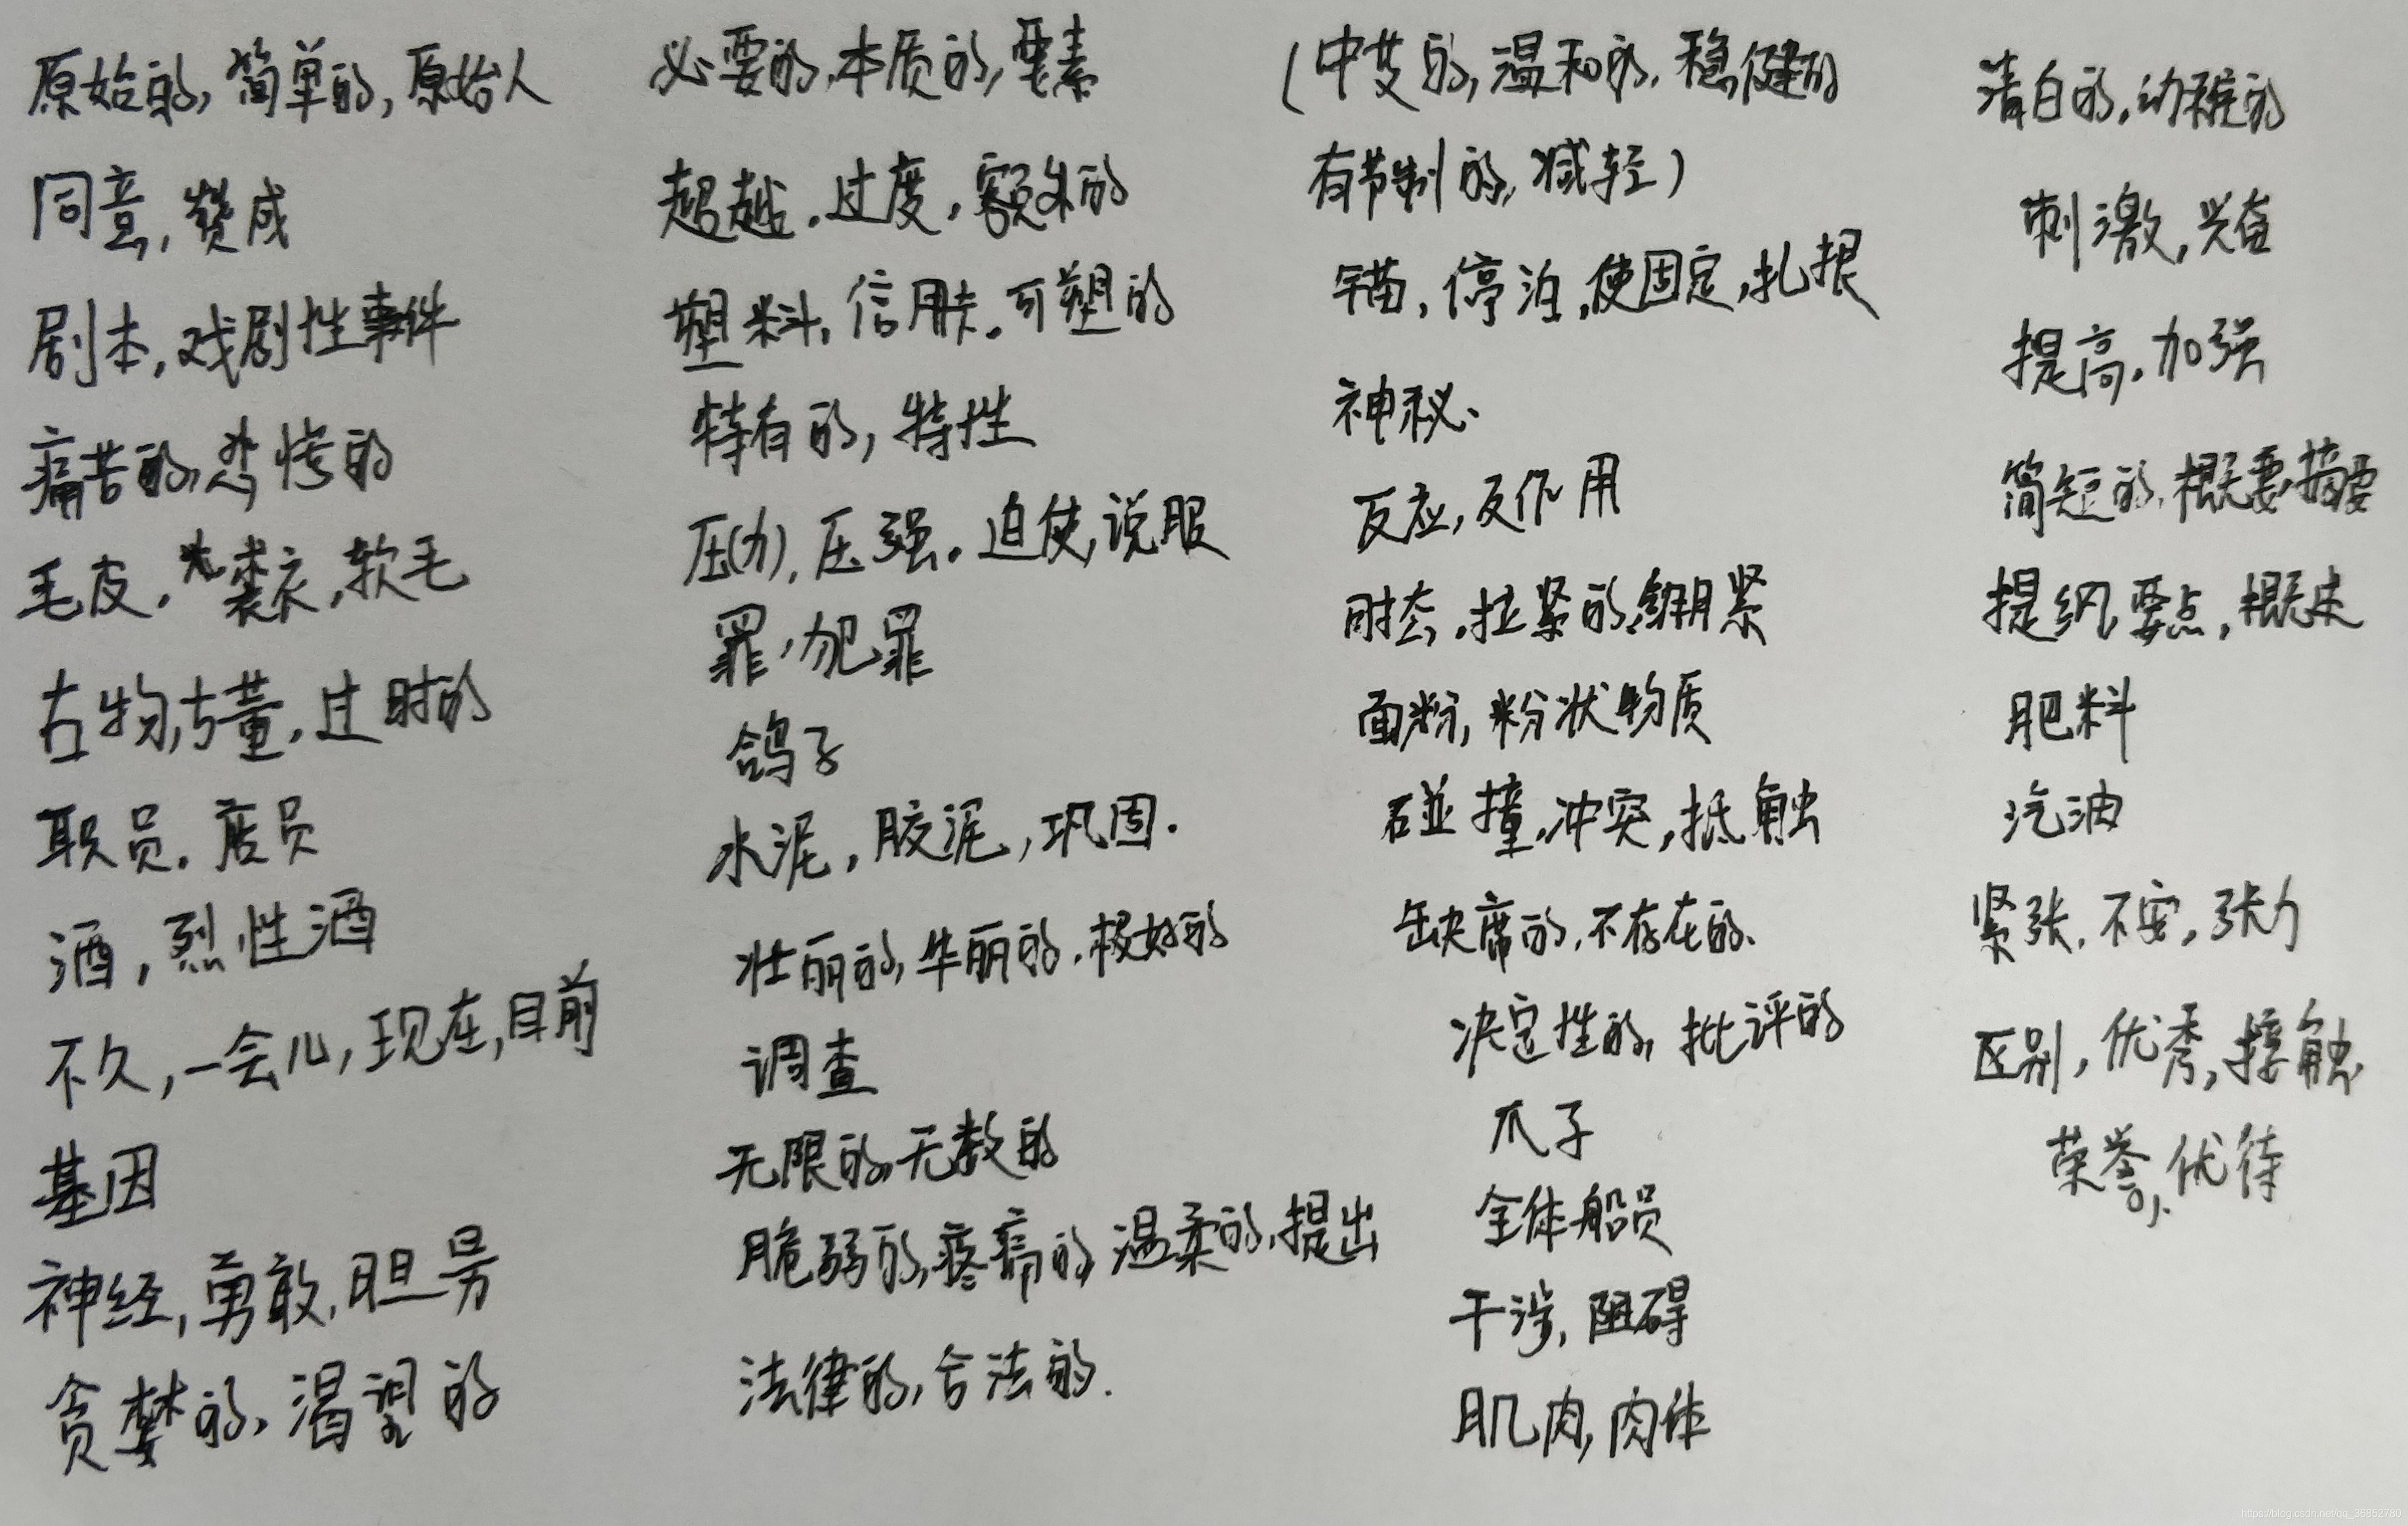 原始的,简单的,原始人
同意,赞成
剧本,戏剧性事件
痛苦的,悲惨的
毛皮,裘衣,软毛
古物,古董,过时的
职员,店员
酒,烈性酒
不久,一会儿,现在,目前
基因
神经,勇敢,胆量
贪婪的,渴望的
必要的,本质的,要素
超越,过度,额外的
塑料,信用卡,可塑的
特有的,特性
压(力),压强,迫使,说服
罪,犯罪
鸽子
水泥,胶泥,巩固.
壮丽的,华丽的,极好的
调查
无限的,无数的
脆弱的,疼痛的,温柔的,提出
法律的,合法的.
(中艾的,温和的,稳健的
有节制的,减轻)
锚,停泊,使固定,扎根
神秘、
反应,反作用
时态,拉紧的,绷紧
面粉,粉状物质
碰撞,冲突,抵触
缺席的,不存在的、
决定性的,批评的
爪子
全体船员
干涉,阻碍
肌肉,肉体
清白的,幼稚的
刺激,兴奋
提高,加强
简短的,概要,摘要
提纲,要点,概述
肥料
汽油
紧张,不安,张力
区别,优秀,接触
荣誉,优待
https://blog.csdn.net/qq_36852780